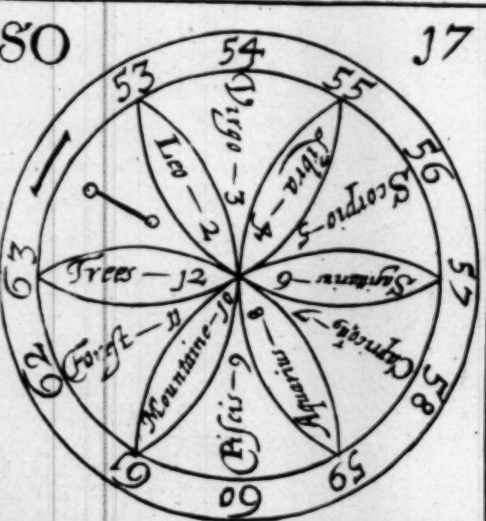 SO
17
53
54
55
56
57
58
59
60
61
62
63
Leo — 2
Virgo — 3
Libra — 4
Scorpio — 5
Sagitarius — 6
Capricor9 — 7
Aquarius — 8
Pisis — 9
Mountaine — 10
11
Trees — 12